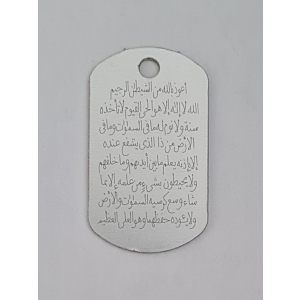 اعوذ بالله من الشيطان الرجيم
الله لا إله إلا هو الحي القيوم لا تأخذه
سنة ولا نوم له ما في السموات وما في
الأرض من ذا الذي يشفع عنده
إلا بإذنه يعلم ما بين أيديهم وما خلفهم
ولا يحيطون بشيء من علمه إلا بما
شاء وسع كرسيه السموات والأرض
ولا يئوده حفظهما وهو العلي العظيم